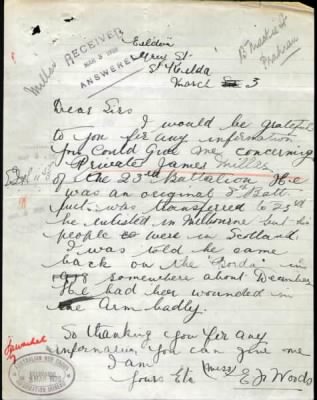 RECEIVED
MAR 5 1918
ANSWERED
Miller
Eildon
Grey St.
St Kilda
March 3
Prahran
Dear Sirs
I would be grateful
to you for any information
you could give me concerning
Private James Miller
of the 23rd Battalion He
was an original 8th Batt.
but was transferred to 23rd
he enlisted in Melbourne but his
people were in Scotland.
I was told he came
back on the "Borda" in
somewhere about December
He had been wounded in
the Arm badly.
So thanking you for any
information you can give me
I am
Yours Etc (Miss) E J Woods
AUSTRALIAN RED CROSS